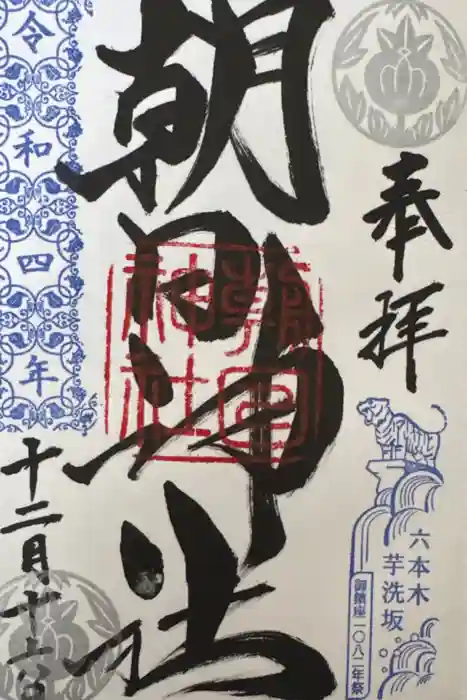 奉拝
六本木
芋洗坂
御鎮座一〇八二年祭
朝日神社
朝日
神社
令和四年
十二月十日